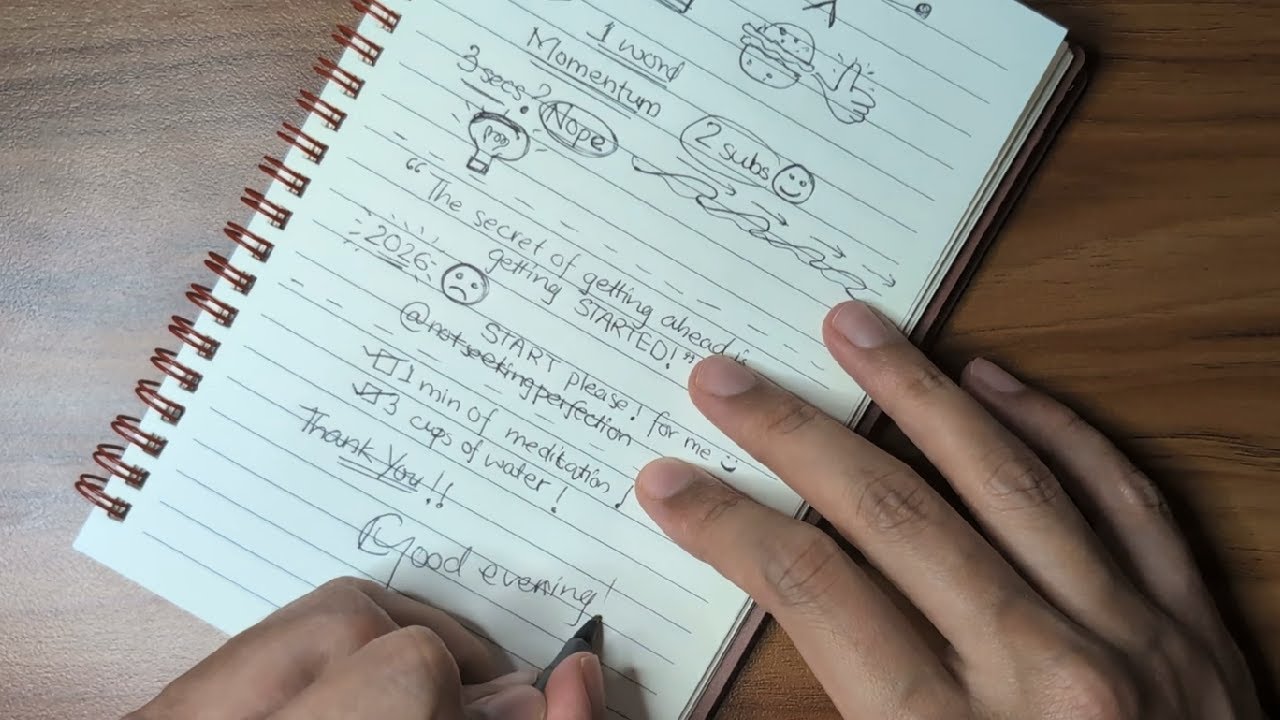 1 word
Momentum
3 secs? Nope
2 subs
"The secret of getting ahead is
getting STARTED!"
2026:
START please! for me
@notseekingperfection
1 min of meditation!
3 cups of water!
Thank You!!
Good evening!